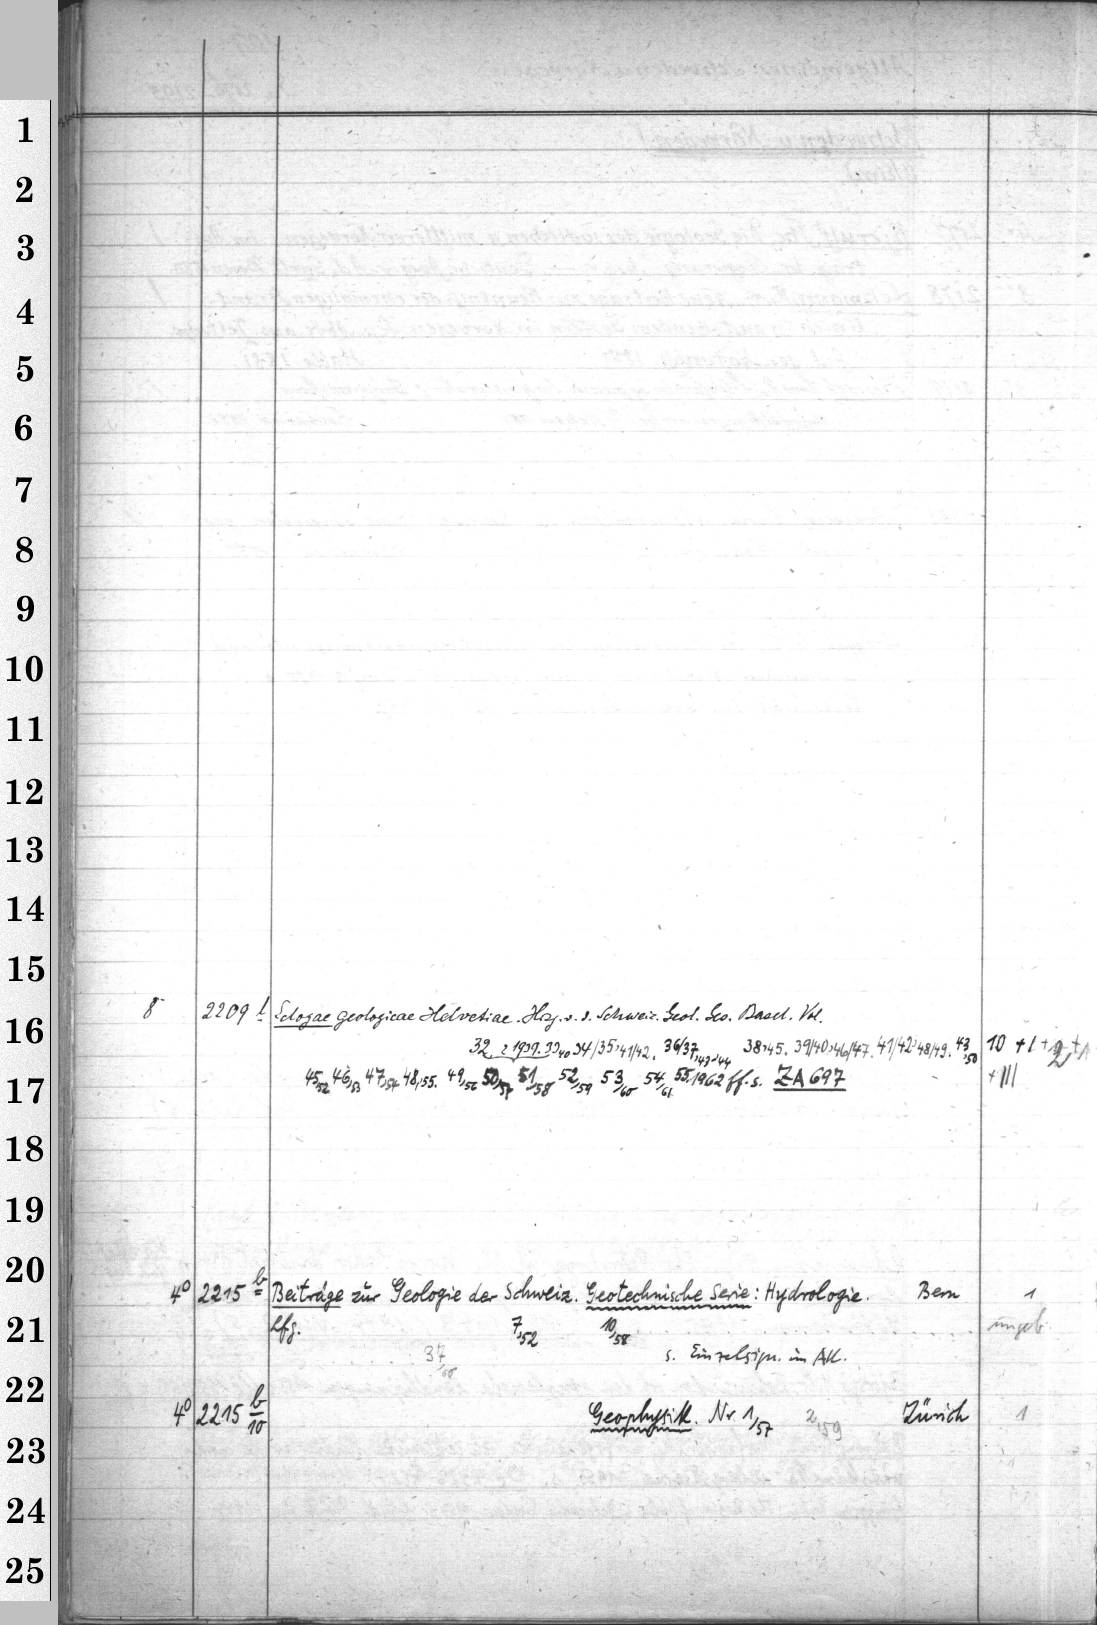 1
2
3
4
5
6
7
8
9
10
11
12
13
14
15
16
17
18
19
20
21
22
23
24
25
8° 2209 l Eclogae geologicae Helvetiae. Hrsg. v. d. Schweiz. Geol. Ges. Basel. Vol.
32. 2 1939. 33,40, 34/35,41/42. 36/37,43-44 38,45. 39/40,46/47. 41/42,48/49. 43,50 10 + 1 +
45,52 46,53 47,54 48,55. 49,56 50,57 51/58 52/59 53/60 54/61 55,1962 ff. s. ZA 697 + III
4° 2215 b Beiträge zur Geologie der Schweiz. Geotechnische Serie: Hydrologie. Bern 1
Lfg. 7,52 10,58 ungeb.
37,60 s. Einzelsign. im AK.
4° 2215 b/10 Geophysik. Nr. 1,57 2,59 Zürich 1